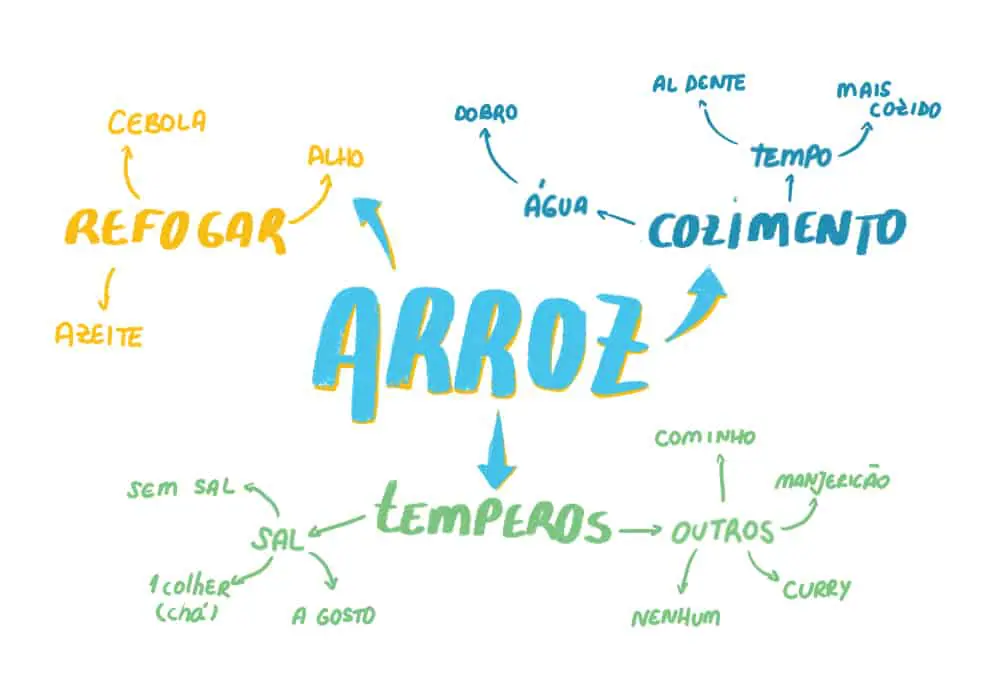 AL DENTE
MAIS
COZIDO
DOBRO
CEBOLA
ALHO
TEMPO
ÁGUA
REFOGAR
COZIMENTO
AZEITE
ARROZ
COMINHO
SEM SAL
MANJERICÃO
TEMPEROS
SAL
OUTROS
1 colher
(chá)
A GOSTO
CURRY
NENHUM